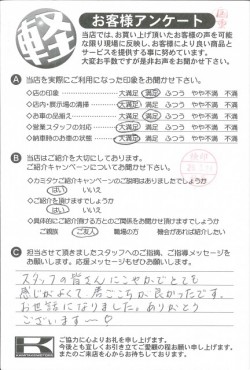 軽
お客様アンケート
当店では、お買い上げ頂いたお客様の声を可能
な限り現場に反映し、お客様により良い商品と
サービスを提供する事に努めています。
大変お手数ですが是非お声をお聞かせ下さい。
A 当店を実際にご利用になった印象をお聞かせ下さい。
◇店の印象 大満足 満足 ふつう やや不満 不満
◇店内・展示場の清掃 大満足 満足 ふつう やや不満 不満
◇お車の品揃え 大満足 満足 ふつう やや不満 不満
◇営業スタッフの対応 大満足 満足 ふつう やや不満 不満
◇納車時のお車の状態 大満足 満足 ふつう やや不満 不満
B 当店はご紹介を大切にしております。
ご紹介キャンペーンについてお聞かせ下さい。
◇カミタケご紹介キャンペーンのご説明はありましたでしょうか
はい いいえ
◇ご紹介を頂けますでしょうか
はい いいえ
◇具体的にご紹介頂ける方とのご関係をお聞かせ頂けますでしょうか
ご親族 ご友人 職場の方 機会があれば紹介したい
C 担当させて頂きましたスタッフへのご指摘、ご指導メッセージを
お願いします。応援メッセージもぜひお願いします。
スタッフの皆さんにこやかでとても
感じがよくて居ごこちが良かったです。
お世話になりました。ありがとう
ございます〜♡
K
ご協力に心よりお礼を申し上げます。
今後とも宜しくお引き立てご愛顧の程お願い申し上げます。
またのご来店を心からお待ちしております。